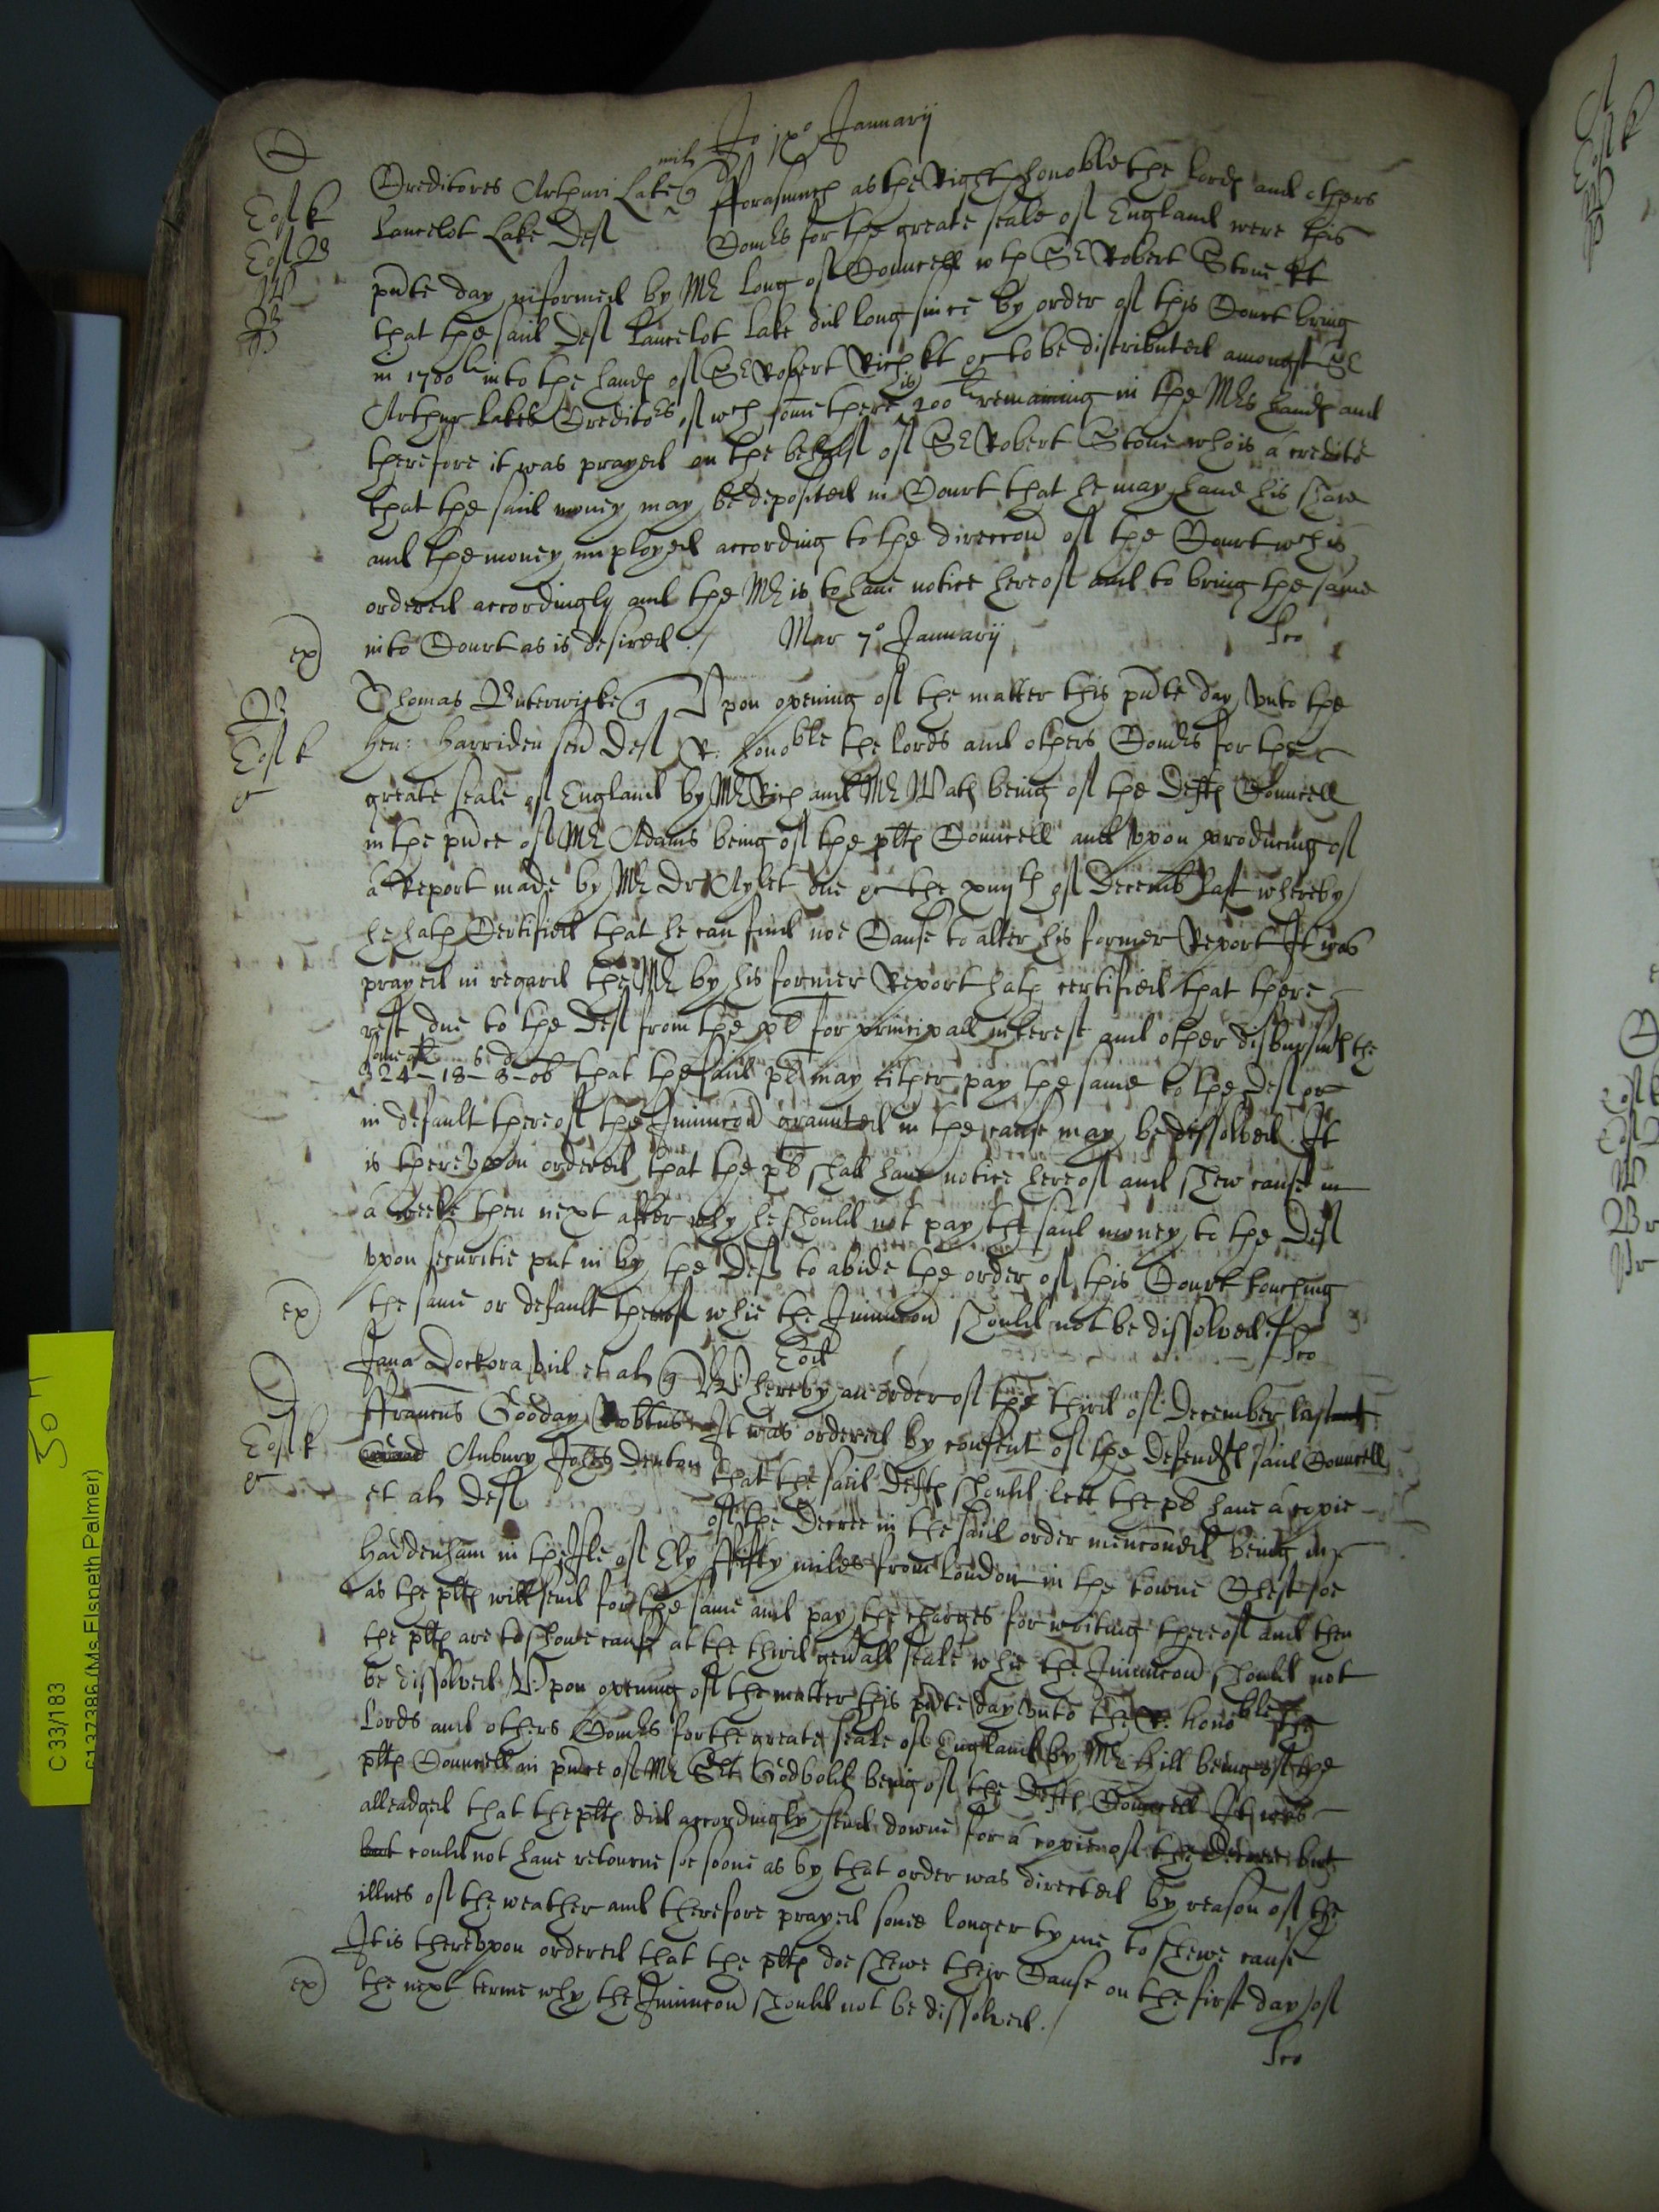 Jo ixo Januarij
Creditores Arthuri Lake mil Q fforasmuch as the Right honoble the lordes and others
Lancelot Lake Deft Comrs for the greate seale of England were this
pnte day informed by Mr Long of Councell wth Sr Robert Stone kt
that the said Deft Lancelot Lake did long since by order of this Court bring
in 1780 li into the handes of Sr Robert Rich kt &c to be distributed amongst Sr
Arthur Lakes Creditors of wch some there is 200 li remaining in the Mrs handes and
therefore it was prayed on the behalf of Sr Robert Stone who is a creditor
that the said money may be deposited in Court that he may have his share
and the money imployed according to the direccon of the Court wch is
ordered accordingly and the Mr is to have notice hereof and to bring the same
into Court as is desired./ Mar 7o Januarij
ex
Thomas Buterwicke Q Upon opening of the matter this pnte day unto the
Hen: Harriden sen Deft R. honoble the lords and others Comrs for the
greate seale of England by Mr Rich and Mr Wath being of the Deftes Councell
in the pnce of Mr Adams being of the pltes Councell and upon producing of
a Report made by Mr Dr Aylet one &c the xviijth of Decemb last whereby
he hath Certified that he can find noe Cause to alter his former Report It was
prayed in regard the Mr by his former Report hath certified that there
rest due to the Deft from the plt for principall interest and other disbursmtes the
some of
324 - 18 s - 8 d - ob that the said plt may either pay the same to the Deft or
in default thereof the Iniunccon graunted in the cause may be dissolved. It
is thereupon ordered that the plt shall have notice hereof and shew cause in
a weeke then next after why he should not pay the said money to the Deft
upon securitie put in by the Deft to abide the order of this Court touching
the same or default thereof whie the Iniunccon should not be dissolved./
ex
Jana Dockora vid et al Q Eod Whereby an order of the third of December last
ffrancus Gooday Robtus It was ordered by consent of the Defendtes said Councell
Anbury Johes Denton that the said Deftes should lett the plt have a copie
et al Deft of the Decree in the said order menconed being in
Haddenham in the Isle of Ely ffifty miles from London in the towne Chest soe
as the pltes will send for the same and pay the charges for writing thereof and then
the pltes are to showe cause at the third genall seale whie the Iniunccon should not
be dissolved. Upon opening of the matter this pnte day unto the R. honoble the
Lords and others Comrs for the greate seale of England by Mr Hill being of the
pltes Councell in pnce of Mr Sit Godbold being of the Deftes Councell It was
alleadged that the pltes did accordingly send downe for a copie of the Decree but
but could not have retourne soe soone as by that order was directed by reason of the
illnes of the weather and therefore prayed some longer tyme to shewe cause
It is thereupon ordered that the pltes doe shewe their Cause on the first day of
the next terme why the Iniunccon should not be dissolved./
ex
C 33/183
(Ms Elspeth Palmer)